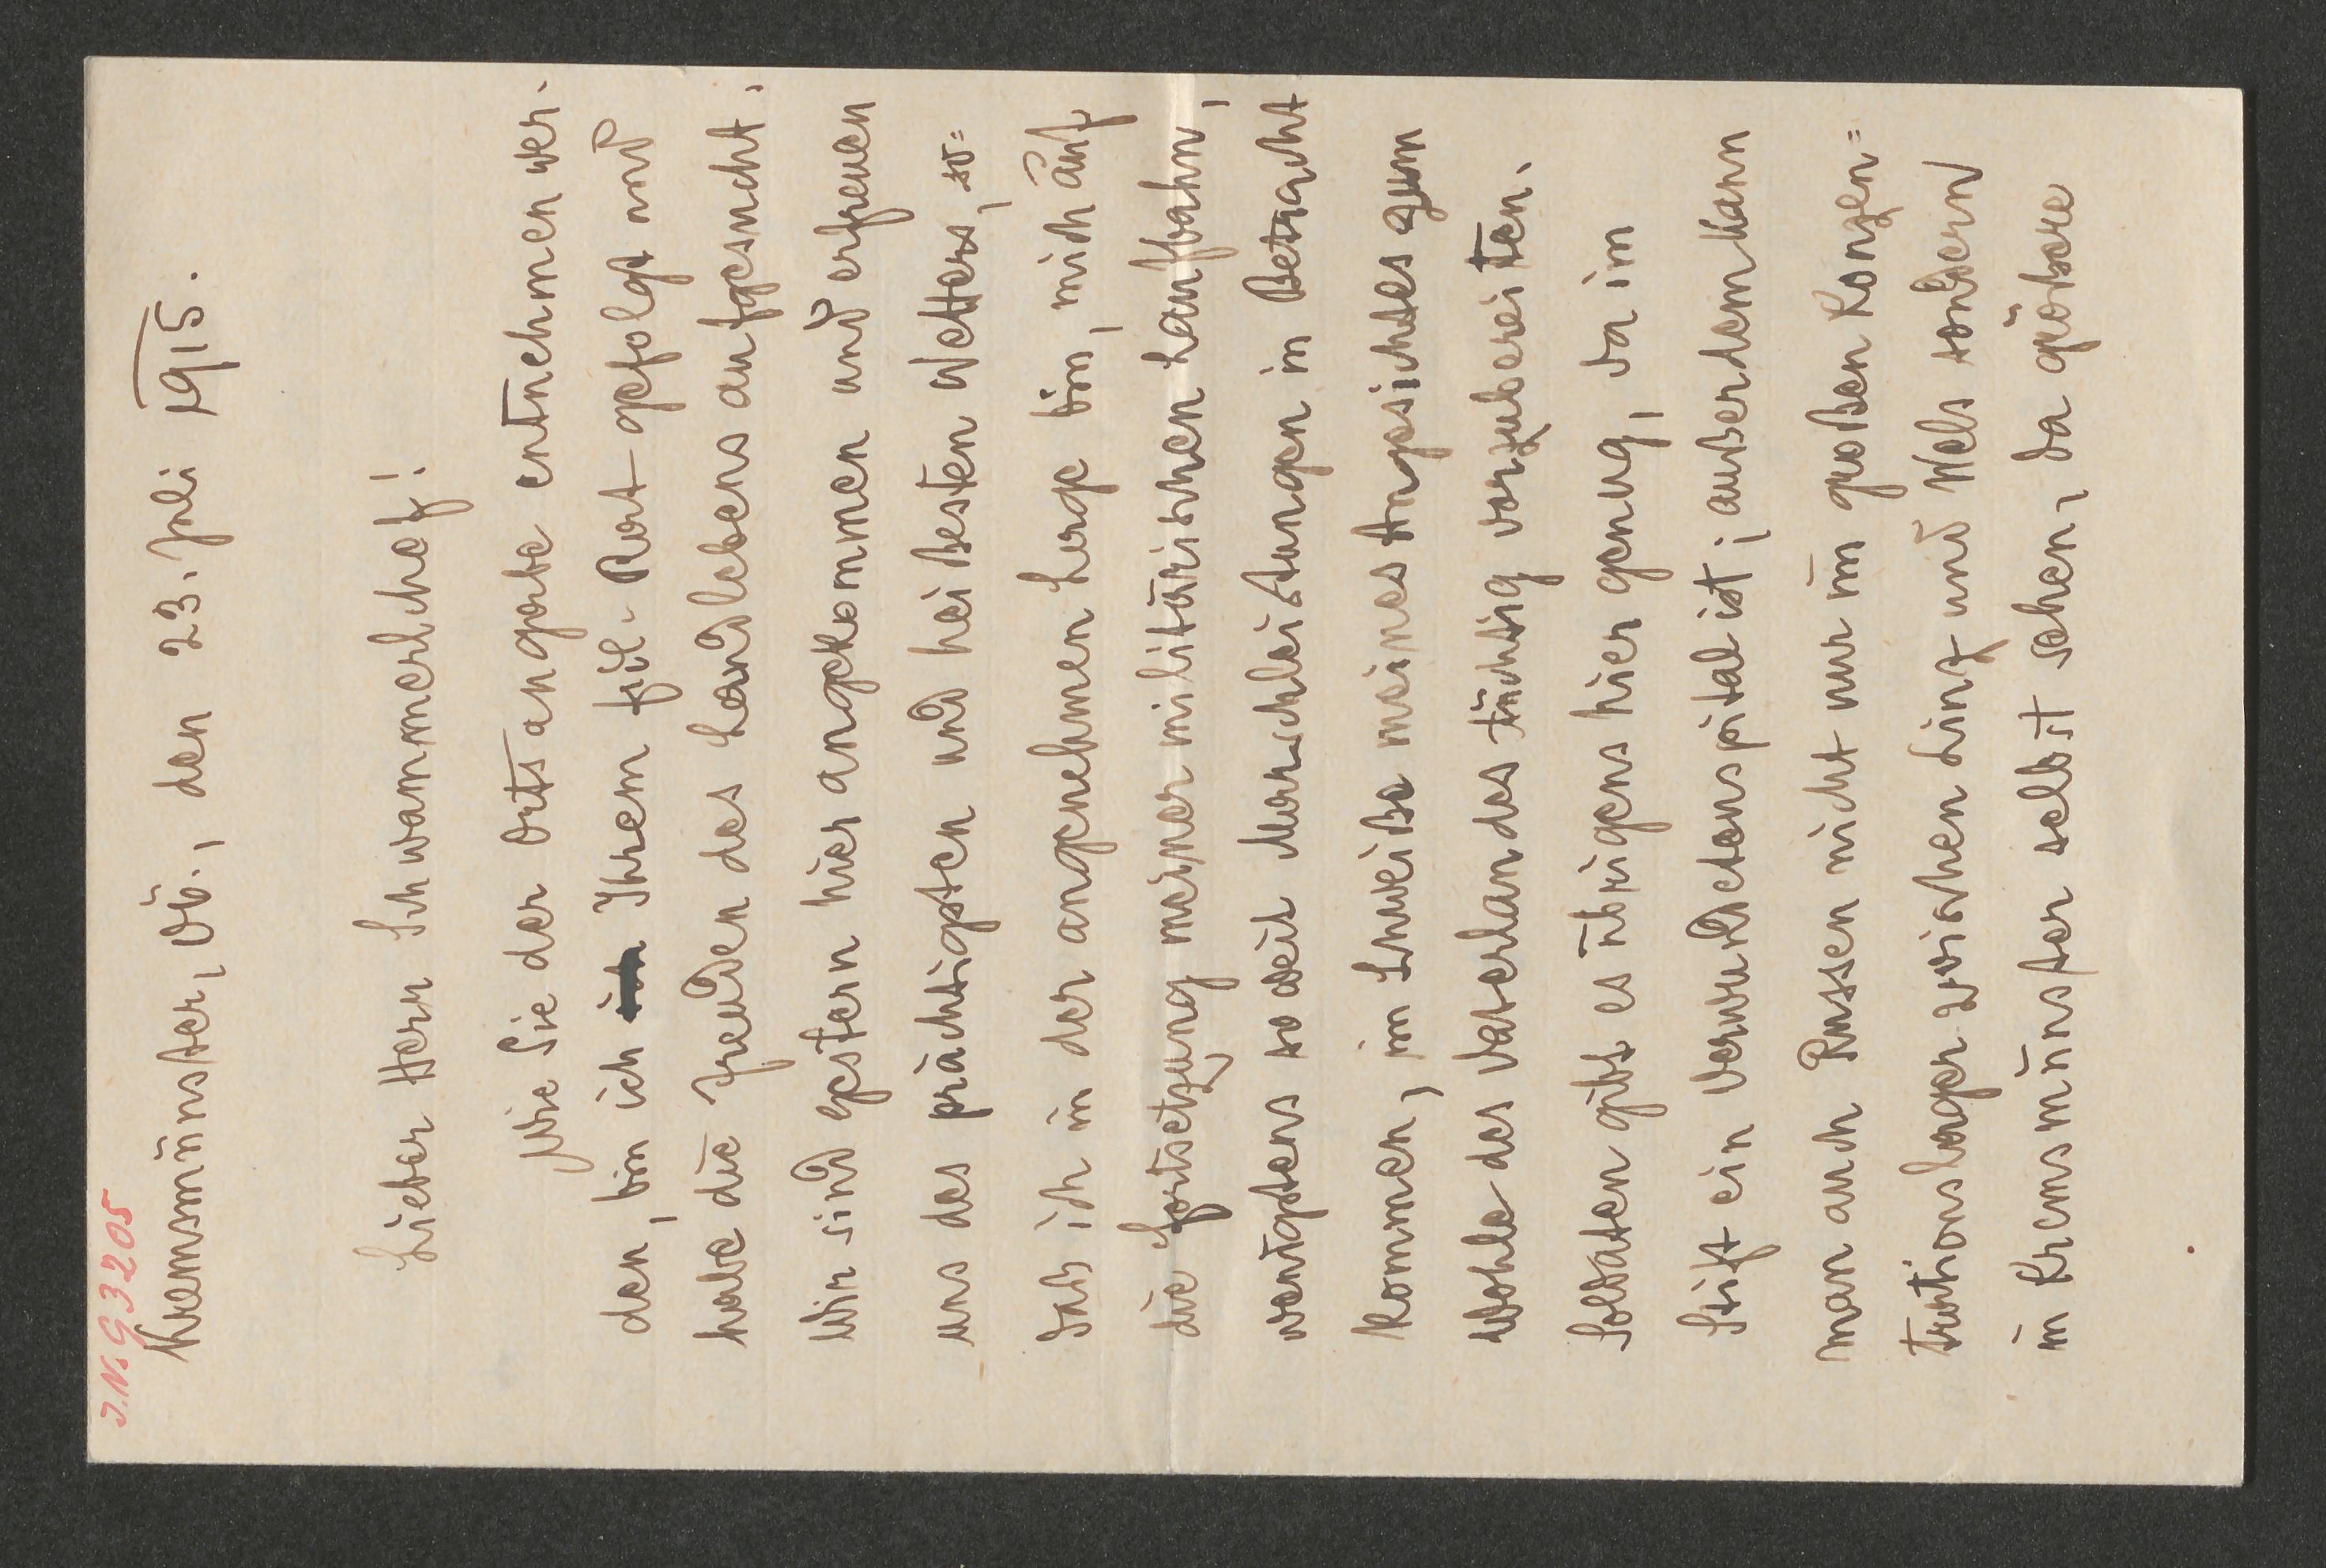 J.N. 93205
Kremsmünster, OÖ., den 23. Juli 1915.
Lieber Herr Schwammerlchef!
Wie Sie der Ortsangabe entnehmen wer-
den, bin ich Ihrem frdl. Rat gefolgt und
habe die Freuden des Landlebens aufgesucht.
Wir sind gestern hier angekommen und erfreuen
uns des prächtigsten und heißesten Wetters, so=
daß ich in der angenehmen Lage bin, mich auf
die Fortsetzung meiner militärischen Laufbahn,
wenigstens so weit Marschleistungen in Betracht
kommen, im Schweiße meines Angesichtes zum
Wohle des Vaterlandes tüchtig vorzubereiten.
Soldaten gibt es übrigens hier genug, da im
Stift ein Verwundetenspital ist; außerdem kann
man auch Russen nicht nur im großen Konzen=
trationslager zwischen Linz und Wels sondern
in Kremsmünster selbst sehen, da größere